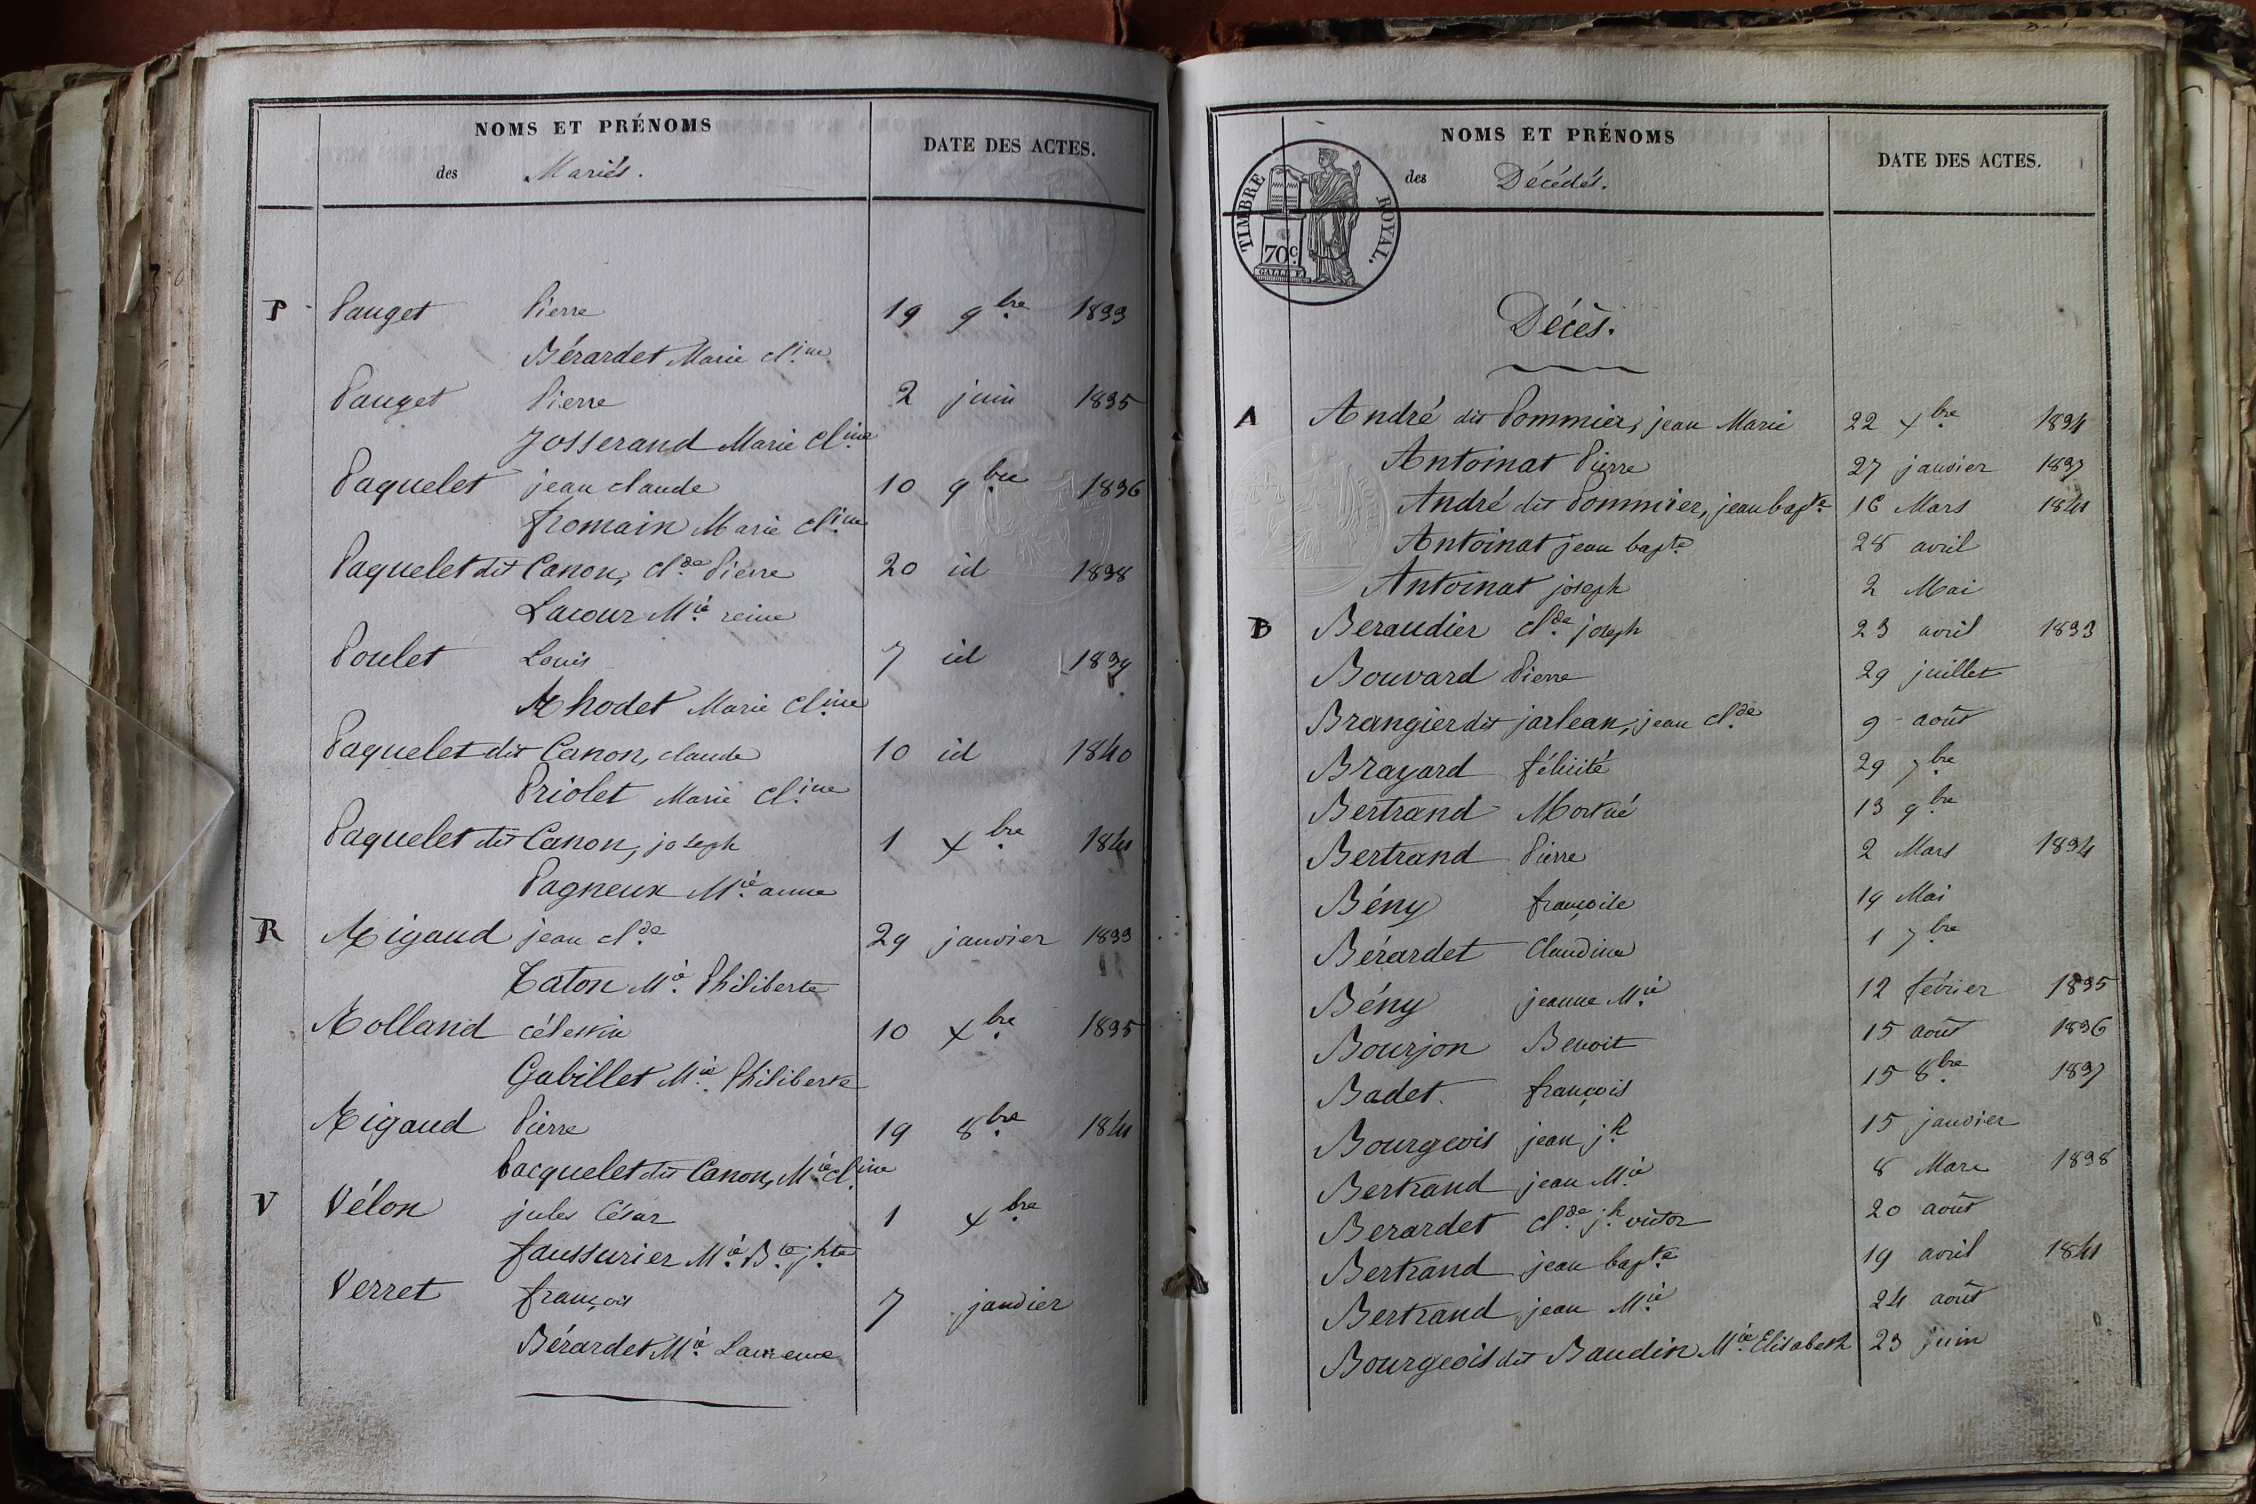 NOMS ET PRÉNOMS
des Mariés.
DATE DES ACTES.
P Pauget Pierre 19 9bre 1833
Bérardet Marie Cline
Pauget Pierre 2 juin 1835
Josserand Marie Cline
Paquelet jean claude 10 9bre 1836
fromain Marie Cline
Paquelet dit Canon, Clde Pierre 20 id 1838
Lacour Mie reine
Poulet Louis 7 id 1839
Rhodet Marie Cline
Paquelet dit Canon, claude 10 id 1840
Priolet Marie Cline
Paquelet dit Canon, joseph 1 Xbre 1841
Pagneux Mie anne
R Rigaud jean Clde 29 janvier 1833
Taton Mie Philiberte
Rolland célestin 10 Xbre 1835
Gabillet Mie Philiberte
Rigaud Pierre 19 8bre 1841
Pacquelet dit Canon, Mie Cline
V Vélon jules César 1 Xbre
faussurier Mie Bte jhte
Verret françois 7 janvier
Bérardet Mie Laurence
NOMS ET PRÉNOMS
des Décédés.
DATE DES ACTES.
TIMBRE ROYAL.
70c
Décès.
A André dit Pommier, jean Marie 22 Xbre 1834
Antoinat Pierre 27 janvier 1837
André dit Pommier, jean bapte 16 Mars 1841
Antoinat jean bapte 28 avril
Antoinat joseph 2 Mai
B Beraudier Clde joseph 23 avril 1833
Bouvard Pierre 29 juillet
Brangier dit jarlean, jean Clde 9 août
Brayard félicité 29 7bre
Bertrand Mort né 13 9bre
Bertrand Pierre 2 Mars 1834
Bény françoise 19 Mai
Bérardet Claudine 1 7bre
Bény jeanne Mie 12 février 1835
Bourjon Benoit 15 août 1836
Badet françois 15 8bre 1837
Bourgeois jean jh 15 janvier
Bertrand jean Mie 8 Mars 1838
Berardet Clde jh victor 20 août
Bertrand jean bapte 19 avril 1841
Bertrand jean Mie 24 août
Bourgeois dit Baudin Mie Elisabeth 23 juin